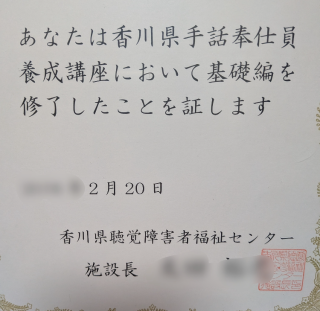 あなたは香川県手話奉仕員
養成講座において基礎編を
修了したことを証します
2月20日
香川県聴覚障害者福祉センター
施設長